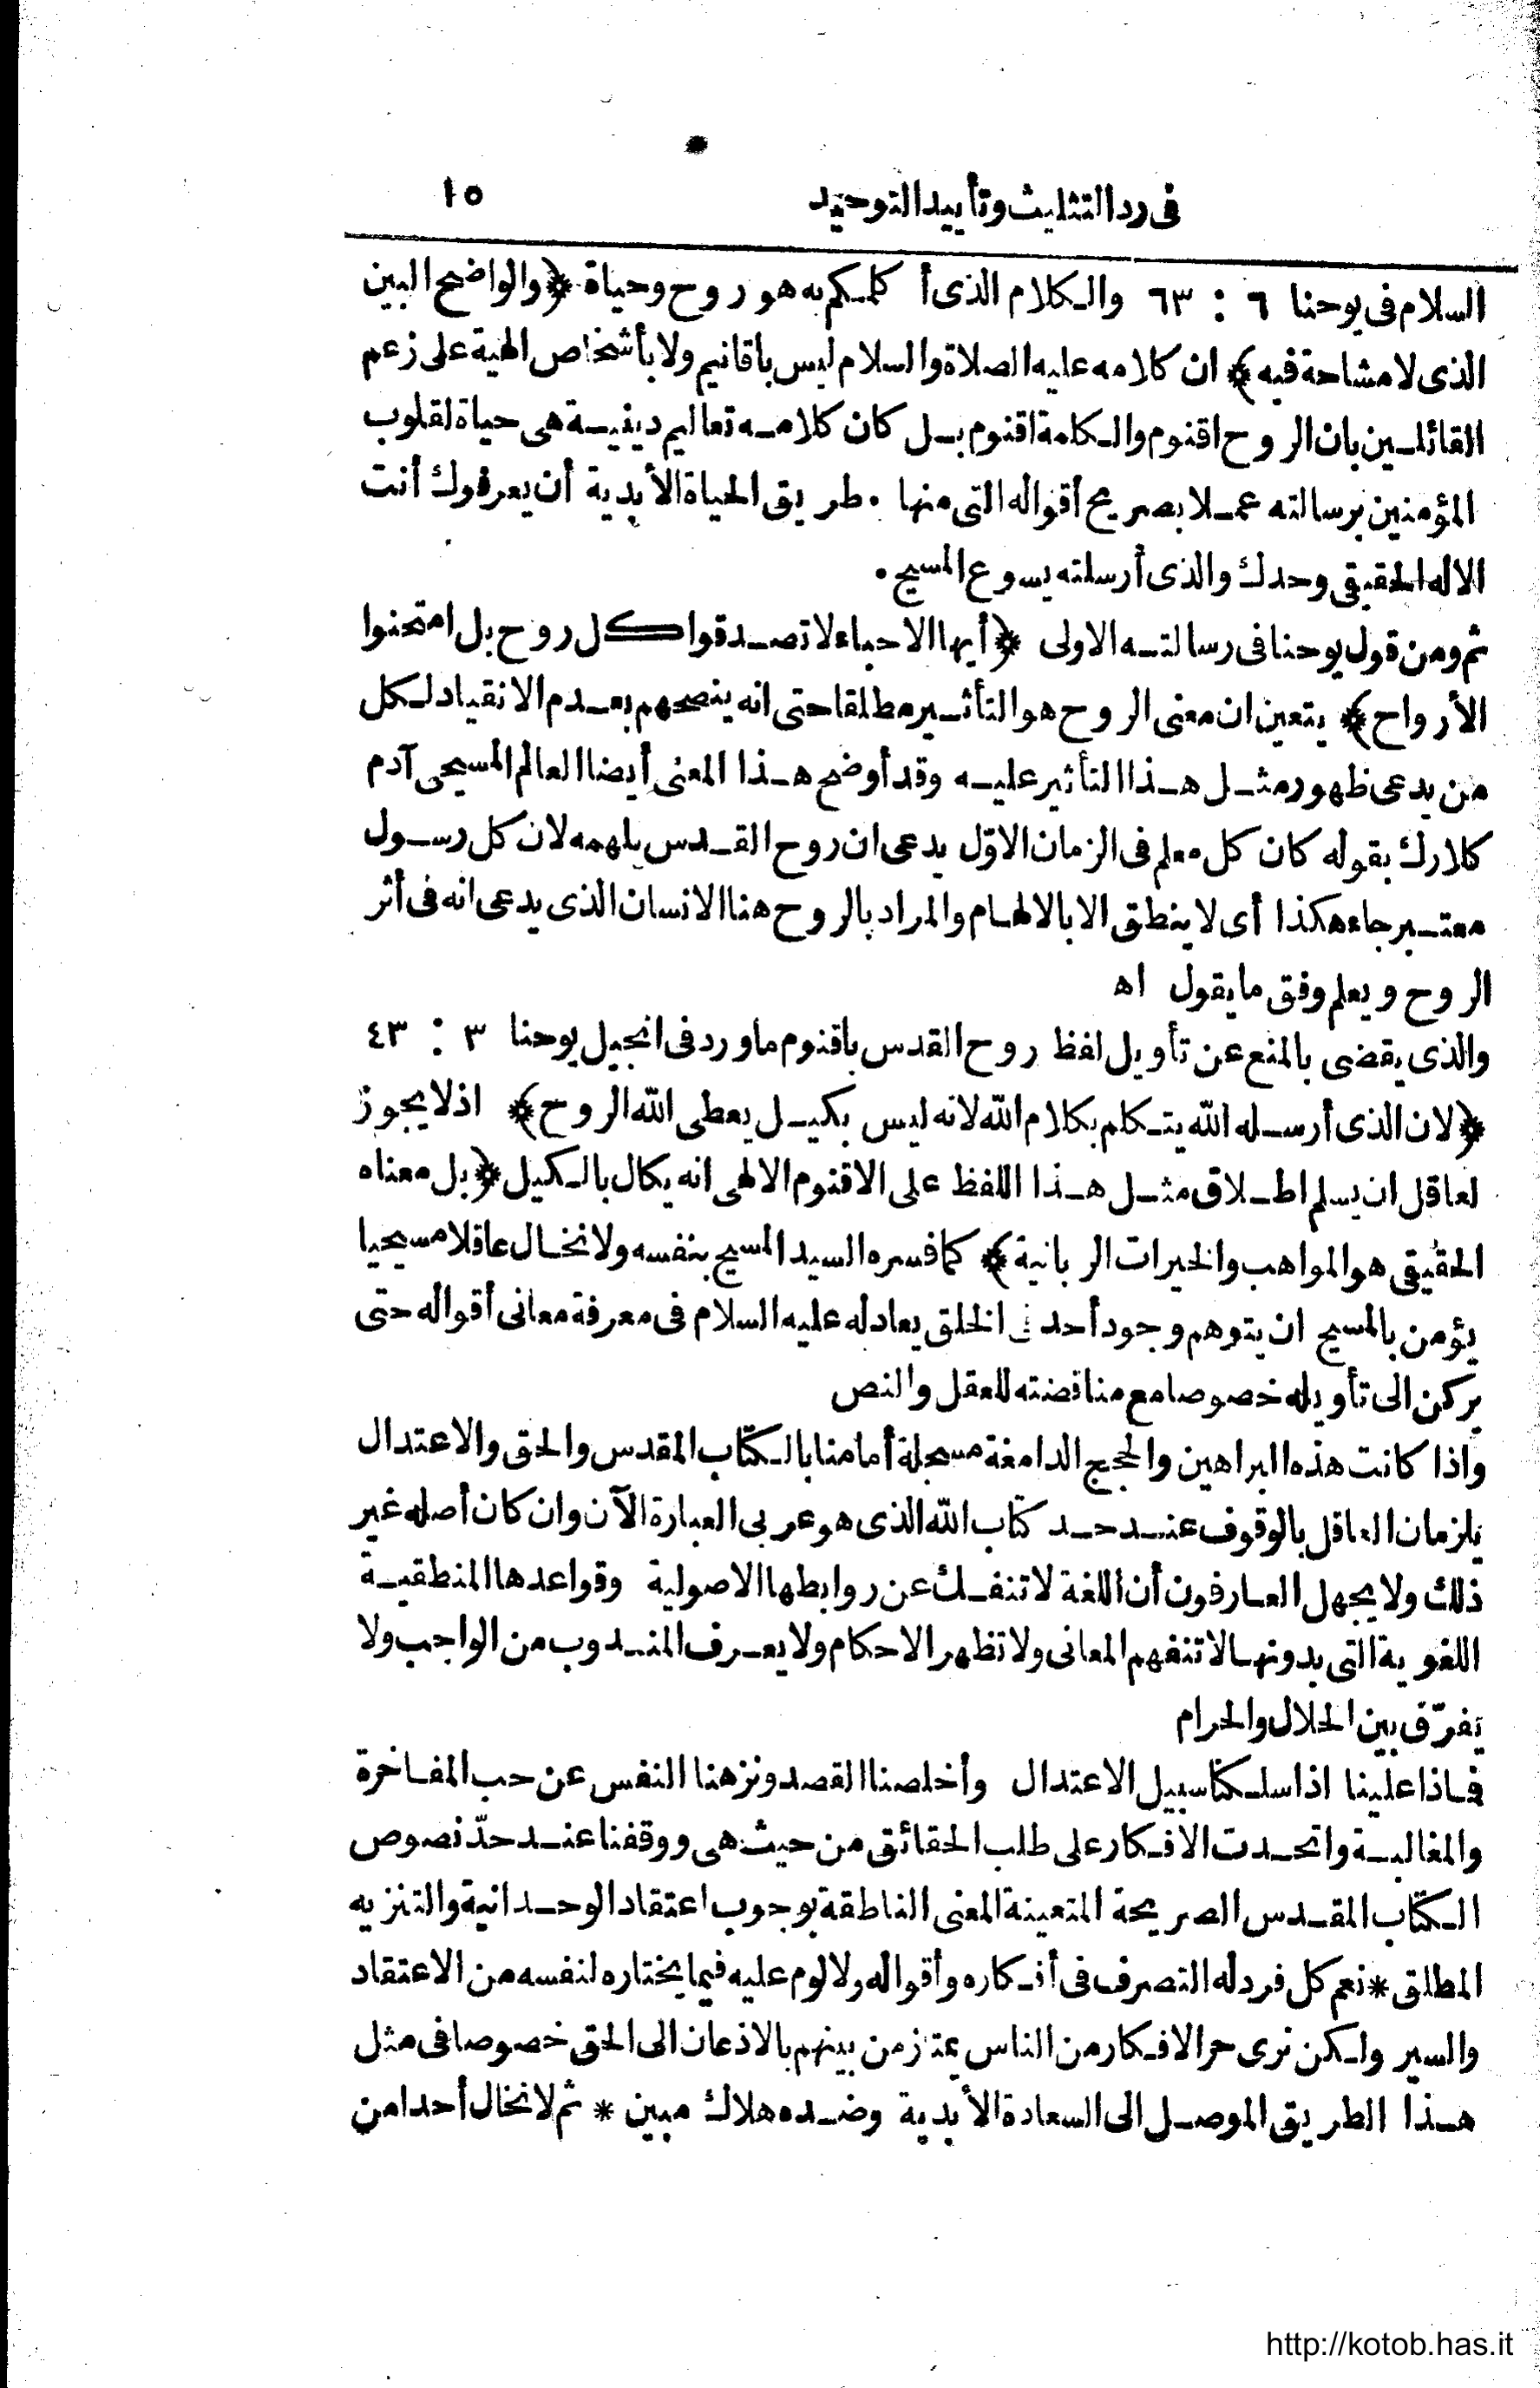 فى رد التثليث وتأييد التوحيد ١٥
السلام فى يوحنا ٦ : ٦٣ والكلام الذى أكلمكم به هو روح وحياة ﴿والواضح البين
الذى لا مشاحة فيه﴾ ان كلامه عليه الصلاة والسلام ليس باقانيم ولا بأشخاص الهية على زعم
القائلين بان الروح اقنوم والكلمة اقنوم بل كان كلامه تعاليم دينية هى حياة لقلوب
المؤمنين برسالته عملا بصريح أقواله التى منها . طريق الحياة الأبدية أن يعرفوك أنت
الاله الحقيقى وحدك والذى أرسلته يسوع المسيح .
ثم ومن قول يوحنا فى رسالته الاولى ﴿أيها الاحباء لا تصدقوا كل روح بل امتحنوا
الأرواح﴾ يتعين ان معنى الروح هو التأثير مطلقا حتى انه ينصحهم بعدم الانقياد لكل
من يدعى ظهور مثل هذا التأثير عليه وقد أوضح هذا المعنى أيضا العالم المسيحى آدم
كلارك بقوله كان كل معلم فى الزمان الاوّل يدعى ان روح القدس يلهمه لان كل رسول
معتبر جاء هكذا أى لا ينطق الا بالالهام والمراد بالروح هنا الانسان الذى يدعى انه فى أثر
الروح ويعلم وفق ما يقول اه
والذى يقضى بالمنع عن تأويل لفظ روح القدس باقنوم ما ورد فى انجيل يوحنا ٣ : ٤٣
﴿لان الذى أرسله الله يتكلم بكلام الله لانه ليس بكيل يعطى الله الروح﴾ اذ لا يجوز
لعاقل ان يسلم اطلاق مثل هذا اللفظ على الاقنوم الالهى انه يكال بالكيل ﴿بل معناه
الحقيقى هو المواهب والخيرات الربانية﴾ كما فسره السيد المسيح بنفسه ولا نخال عاقلا مسيحيا
يؤمن بالمسيح ان يتوهم وجود أحد فى الخلق يعادله عليه السلام فى معرفة معانى أقواله حتى
يركن الى تأويله خصوصا مع مناقضته للعقل والنص
واذا كانت هذه البراهين والحجج الدامغة مسجلة أمامنا بالكتاب المقدس والحق والاعتدال
يلزمان العاقل بالوقوف عند حد كتاب الله الذى هو عربى العبارة الآن وان كان أصله غير
ذلك ولا يجهل العارفون أن اللغة لا تنفك عن روابطها الاصولية وقواعدها المنطقية
اللغوية التى بدونها لا تنفهم المعانى ولا تظهر الاحكام ولا يعرف المندوب من الواجب ولا
يفرّق بين الحلال والحرام
فماذا علينا اذا سلكنا سبيل الاعتدال وأخلصنا القصد ونزهنا النفس عن حب المفاخرة
والمغالبة واتحدت الافكار على طلب الحقائق من حيث هى ووقفنا عند حدّ نصوص
الكتاب المقدس الصريحة المتعينة المعنى الناطقة بوجوب اعتقاد الوحدانية والتنزيه
المطلق * نعم كل فرد له التصرف فى أفكاره وأقواله ولا لوم عليه فيما يختاره لنفسه من الاعتقاد
والسير ولكن نرى حر الافكار من الناس يمتاز من بينهم بالاذعان الى الحق خصوصا فى مثل
هذا الطريق الموصل الى السعادة الأبدية وضده هلاك مبين * ثم لا نخال أحدا من
http://kotob.has.it